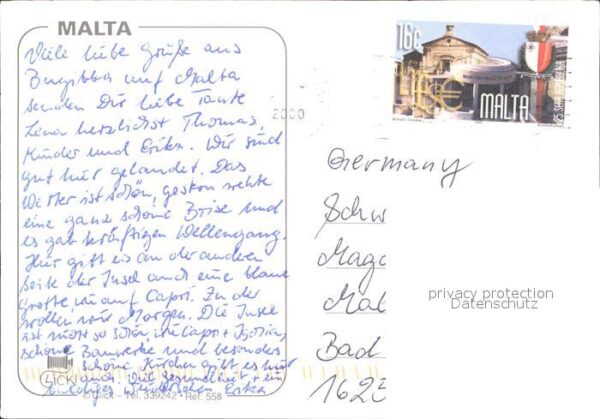 MALTA
Viele liebe Grüße aus
Bugibba auf Malta
senden Dir liebe Tante
Lina herzlichst Thomas,
Kinder und Erika. Wir sind
gut hier gelandet. Das
Wetter ist schön, gestern wehte
eine ganz schöne Brise und
es gab kräftigen Wellengang.
Hier gibt es an der anderen
Seite der Insel auch eine blaue
Grotte wie auf Capri. Zu der
wollen wir Morgen. Die Insel
ist nicht so schön, wie Capri +
schöne Bauwerke und besonders
schöne Kirchen gibt es hier
auch. Viel Gesundheit + ein
baldiges Wiedersehen Erika
CLICK
© Click - Tel. 339242 - Ref. 558
16c
MALTA
2000
Germany
Schw
Magd
Mal
Bad
1623
privacy protection
Datenschutz